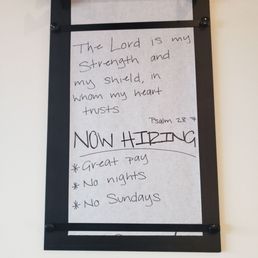 The Lord is my
Strength and
my shield, in
whom my heart
trusts
Psalm 28:7
NOW HIRING
* Great pay
* No nights
* No Sundays